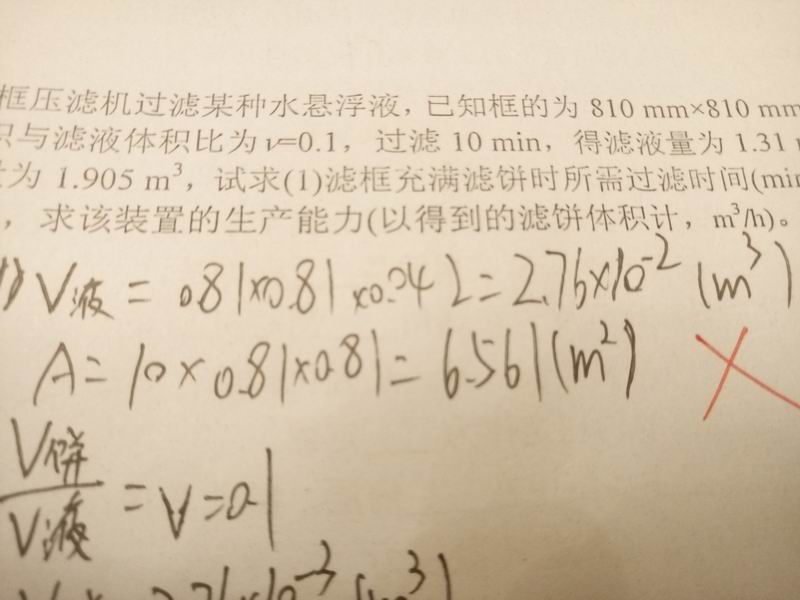 框压滤机过滤某种水悬浮液，已知框的为 810 mm×810 mm
与滤液体积比为ν=0.1，过滤 10 min，得滤液量为 1.31
为 1.905 m³，试求(1)滤框充满滤饼时所需过滤时间(min
，求该装置的生产能力(以得到的滤饼体积计，m³/h)。
1) V液 = 0.81×0.81×0.042=2.76×10⁻² (m³)
A=10×0.81×0.81=6.561(m²)
V饼/V液 = V=0.1